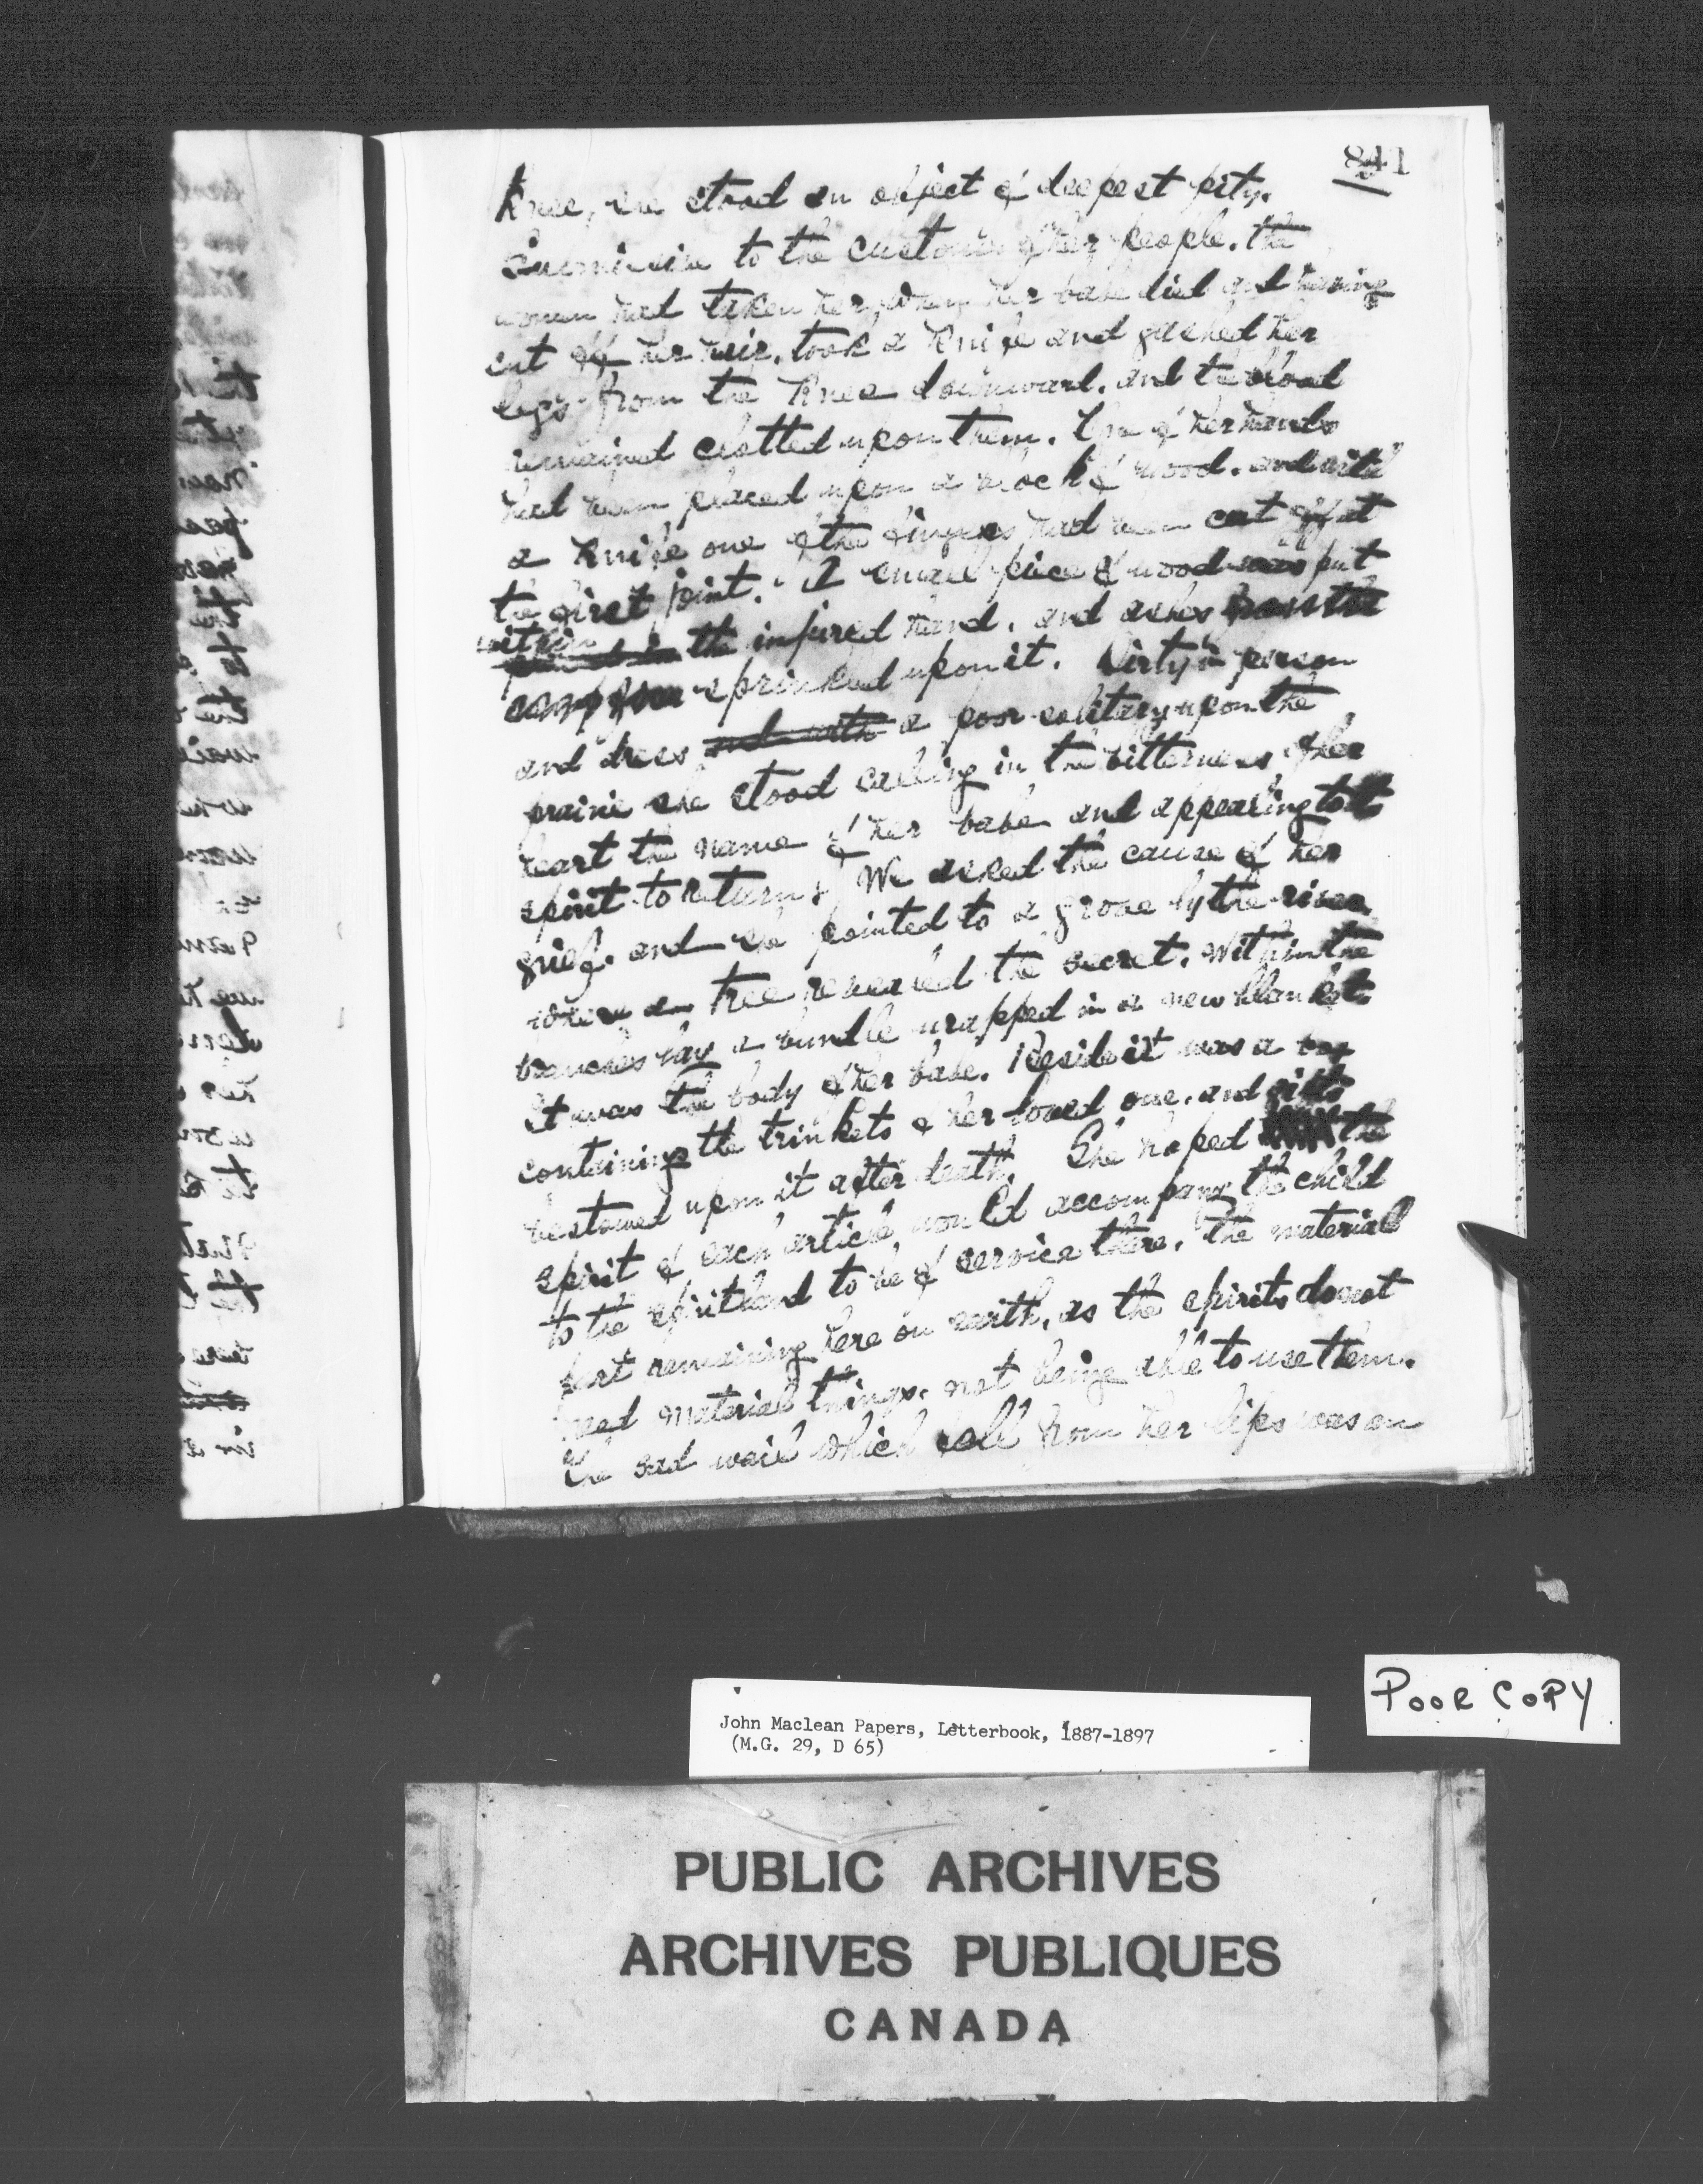 841
knee, she stood an object of deepest pity.
Submissive to the customs of her people, the
women had taken her, when her babe died and having
cut off her hair, took a knife and gashed her
legs from the knee downward, and the blood
remained clotted upon them. One of her hands
had been placed upon a block of wood, and with
a knife one of the fingers had been cut off at
the first joint. A small piece of wood was put
within the injured hand, and ashes from the
camp fire sprinkled upon it. Dirty in person
and dress and with a poor solitary upon the
prairie she stood calling in the bitterness of her
heart the name of her babe and appealing to its
spirit to return. We asked the cause of her
grief, and she pointed to a grove by the river,
where a tree revealed the secret. Within the
branches lay a bundle wrapped in a new blanket.
It was the body of her babe. Beside it was a
containing the trinkets of her loved one, and gifts
bestowed upon it after death. She hoped the
spirit of each article, would accompany the child
to the spirit land to be of service there, the material
part remaining here on earth, as the spirits do not
need material things, not being able to use them.
The sad wail which fell from her lips was an
POOR COPY
John Maclean Papers, Letterbook, 1887-1897
(M.G. 29, D 65)
PUBLIC ARCHIVES
ARCHIVES PUBLIQUES
CANADA